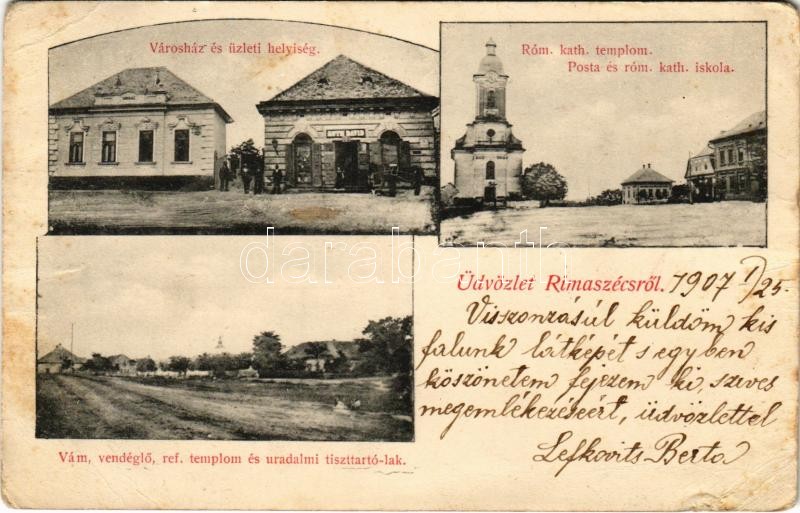 Városház és üzleti helyiség.
ROTH DAVID
Róm. kath. templom.
Posta és róm. kath. iskola.
darabanth
Üdvözlet Rimaszécsről. 1907 I/25.
Visszonzásúl küldöm kis
falunk látképét s egyben
köszönetem fejezem ki, szives
megemlékezéseért, üdvözlettel
Lefkovits Berta
Vám, vendéglő, ref. templom és uradalmi tiszttartó-lak.